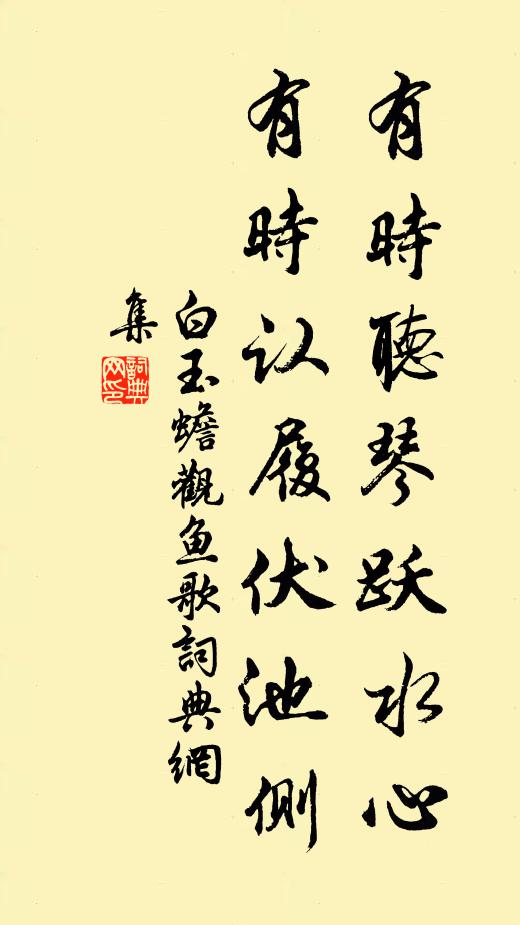 有時聽琴跃水心
有時认履伏池側
白玉蟾觀鱼歌詞典網
集
詞典
网印